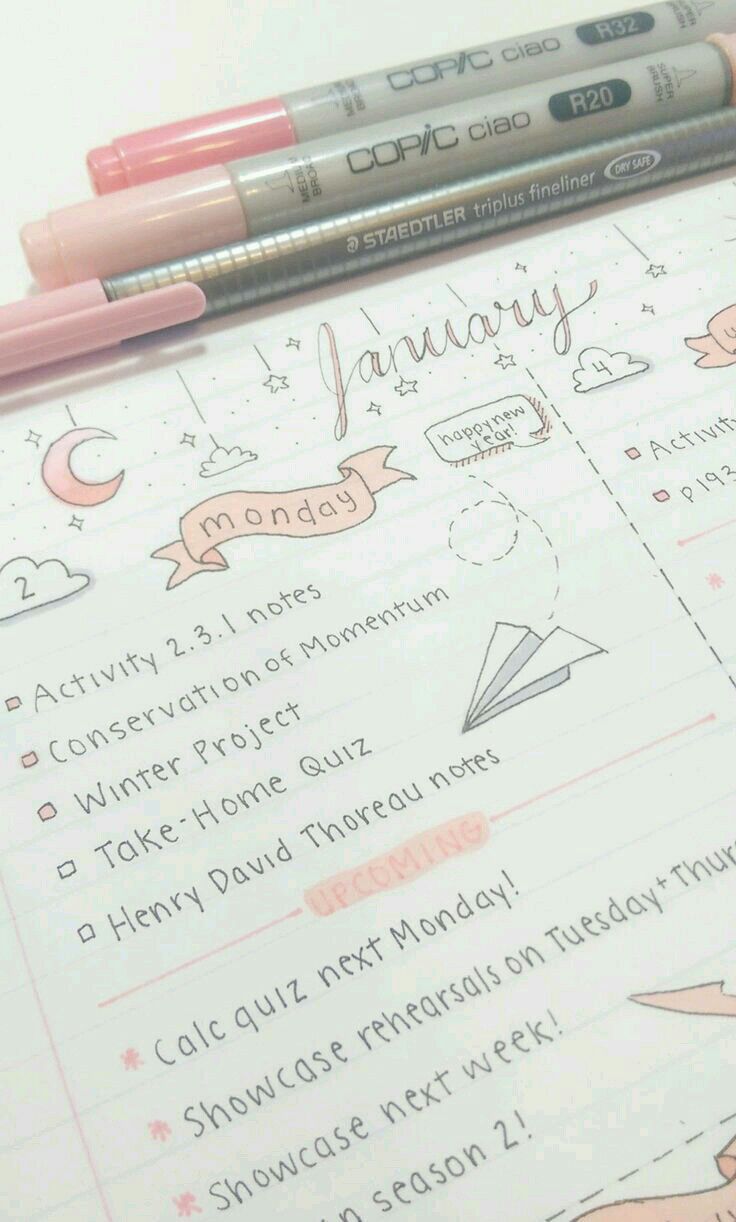 COPIC ciao R32 SUPER BRUSH
MEDIUM BROAD COPIC ciao R20 SUPER BRUSH
STAEDTLER triplus fineliner DRY SAFE
January
4
happy new
year!
monday
2
Activity 2.3.1 notes
Conservation of Momentum
Winter Project
Take-Home Quiz
Henry David Thoreau notes
p193
UPCOMING
Calc quiz next Monday!
Showcase rehearsals on Tuesday +
Showcase next week!
season 2!